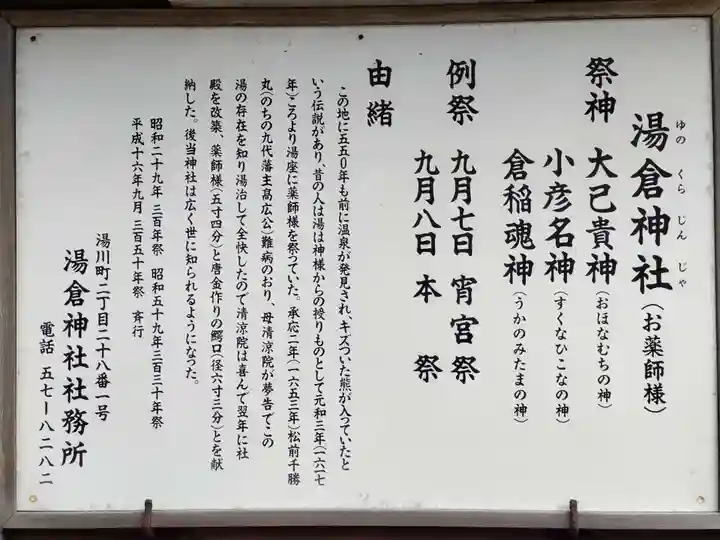 湯倉神社(お薬師様)
ゆの くら じん じゃ
祭神 大己貴神(おほなむちの神)
小彦名神(すくなひこなの神)
倉稲魂神(うかのみたまの神)
例祭 九月七日 宵宮祭
九月八日 本 祭
由緒
この地に五五0年も前に温泉が発見され、キズついた熊が入っていたと
いう伝説があり、昔の人は湯は神様からの授りものとして元和三年(一六一七
年)ころより湯座に薬師様を祭っていた。承応二年(一六五三年)松前千勝
丸(のちの九代藩主高広公)難病のおり、母清涼院が夢告でこの
湯の存在を知り湯治して全快したので清涼院は喜んで翌年に社
殿を改築、薬師様(五寸四分)と唐金作りの鰐口(径六寸三分)とを献
納した。後当神社は広く世に知られるようになった。
昭和二十九年 三百年祭 昭和五十九年三百三十年祭
平成十六年九月 三百五十年祭 斉行
湯川町二丁目二十八番一号
湯倉神社社務所
電話 五七ー八二八二